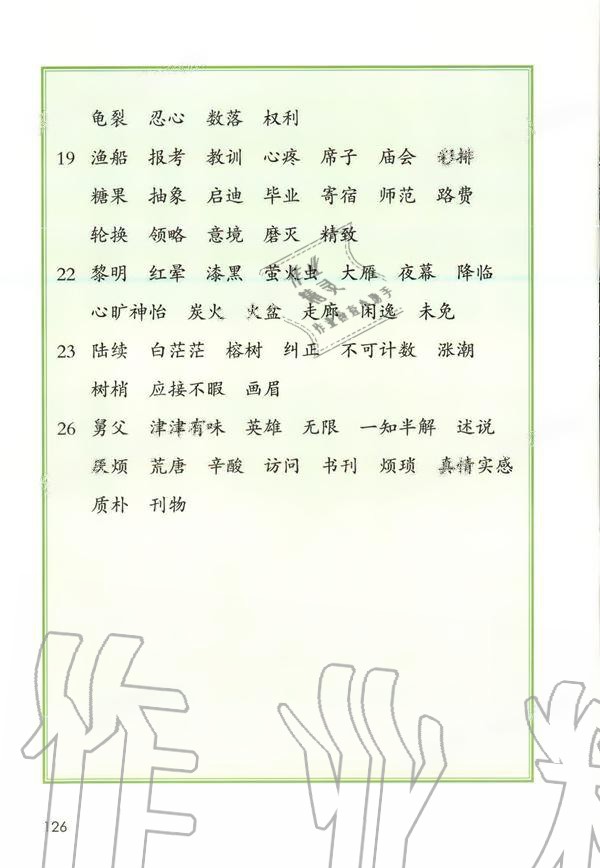 龟裂 忍心 数落 权利
19 渔船 报考 教训 心疼 席子 庙会 彩排
糖果 抽象 启迪 毕业 寄宿 师范 路费
轮换 领略 意境 磨灭 精致
22 黎明 红晕 漆黑 萤火虫 大雁 夜幕 降临
心旷神怡 炭火 火盆 走廊 闲逸 未免
23 陆续 白茫茫 榕树 纠正 不可计数 涨潮
树梢 应接不暇 画眉
26 舅父 津津有味 英雄 无限 一知半解 述说
厌烦 荒唐 辛酸 访问 书刊 烦琐 真情实感
质朴 刊物
作业
126